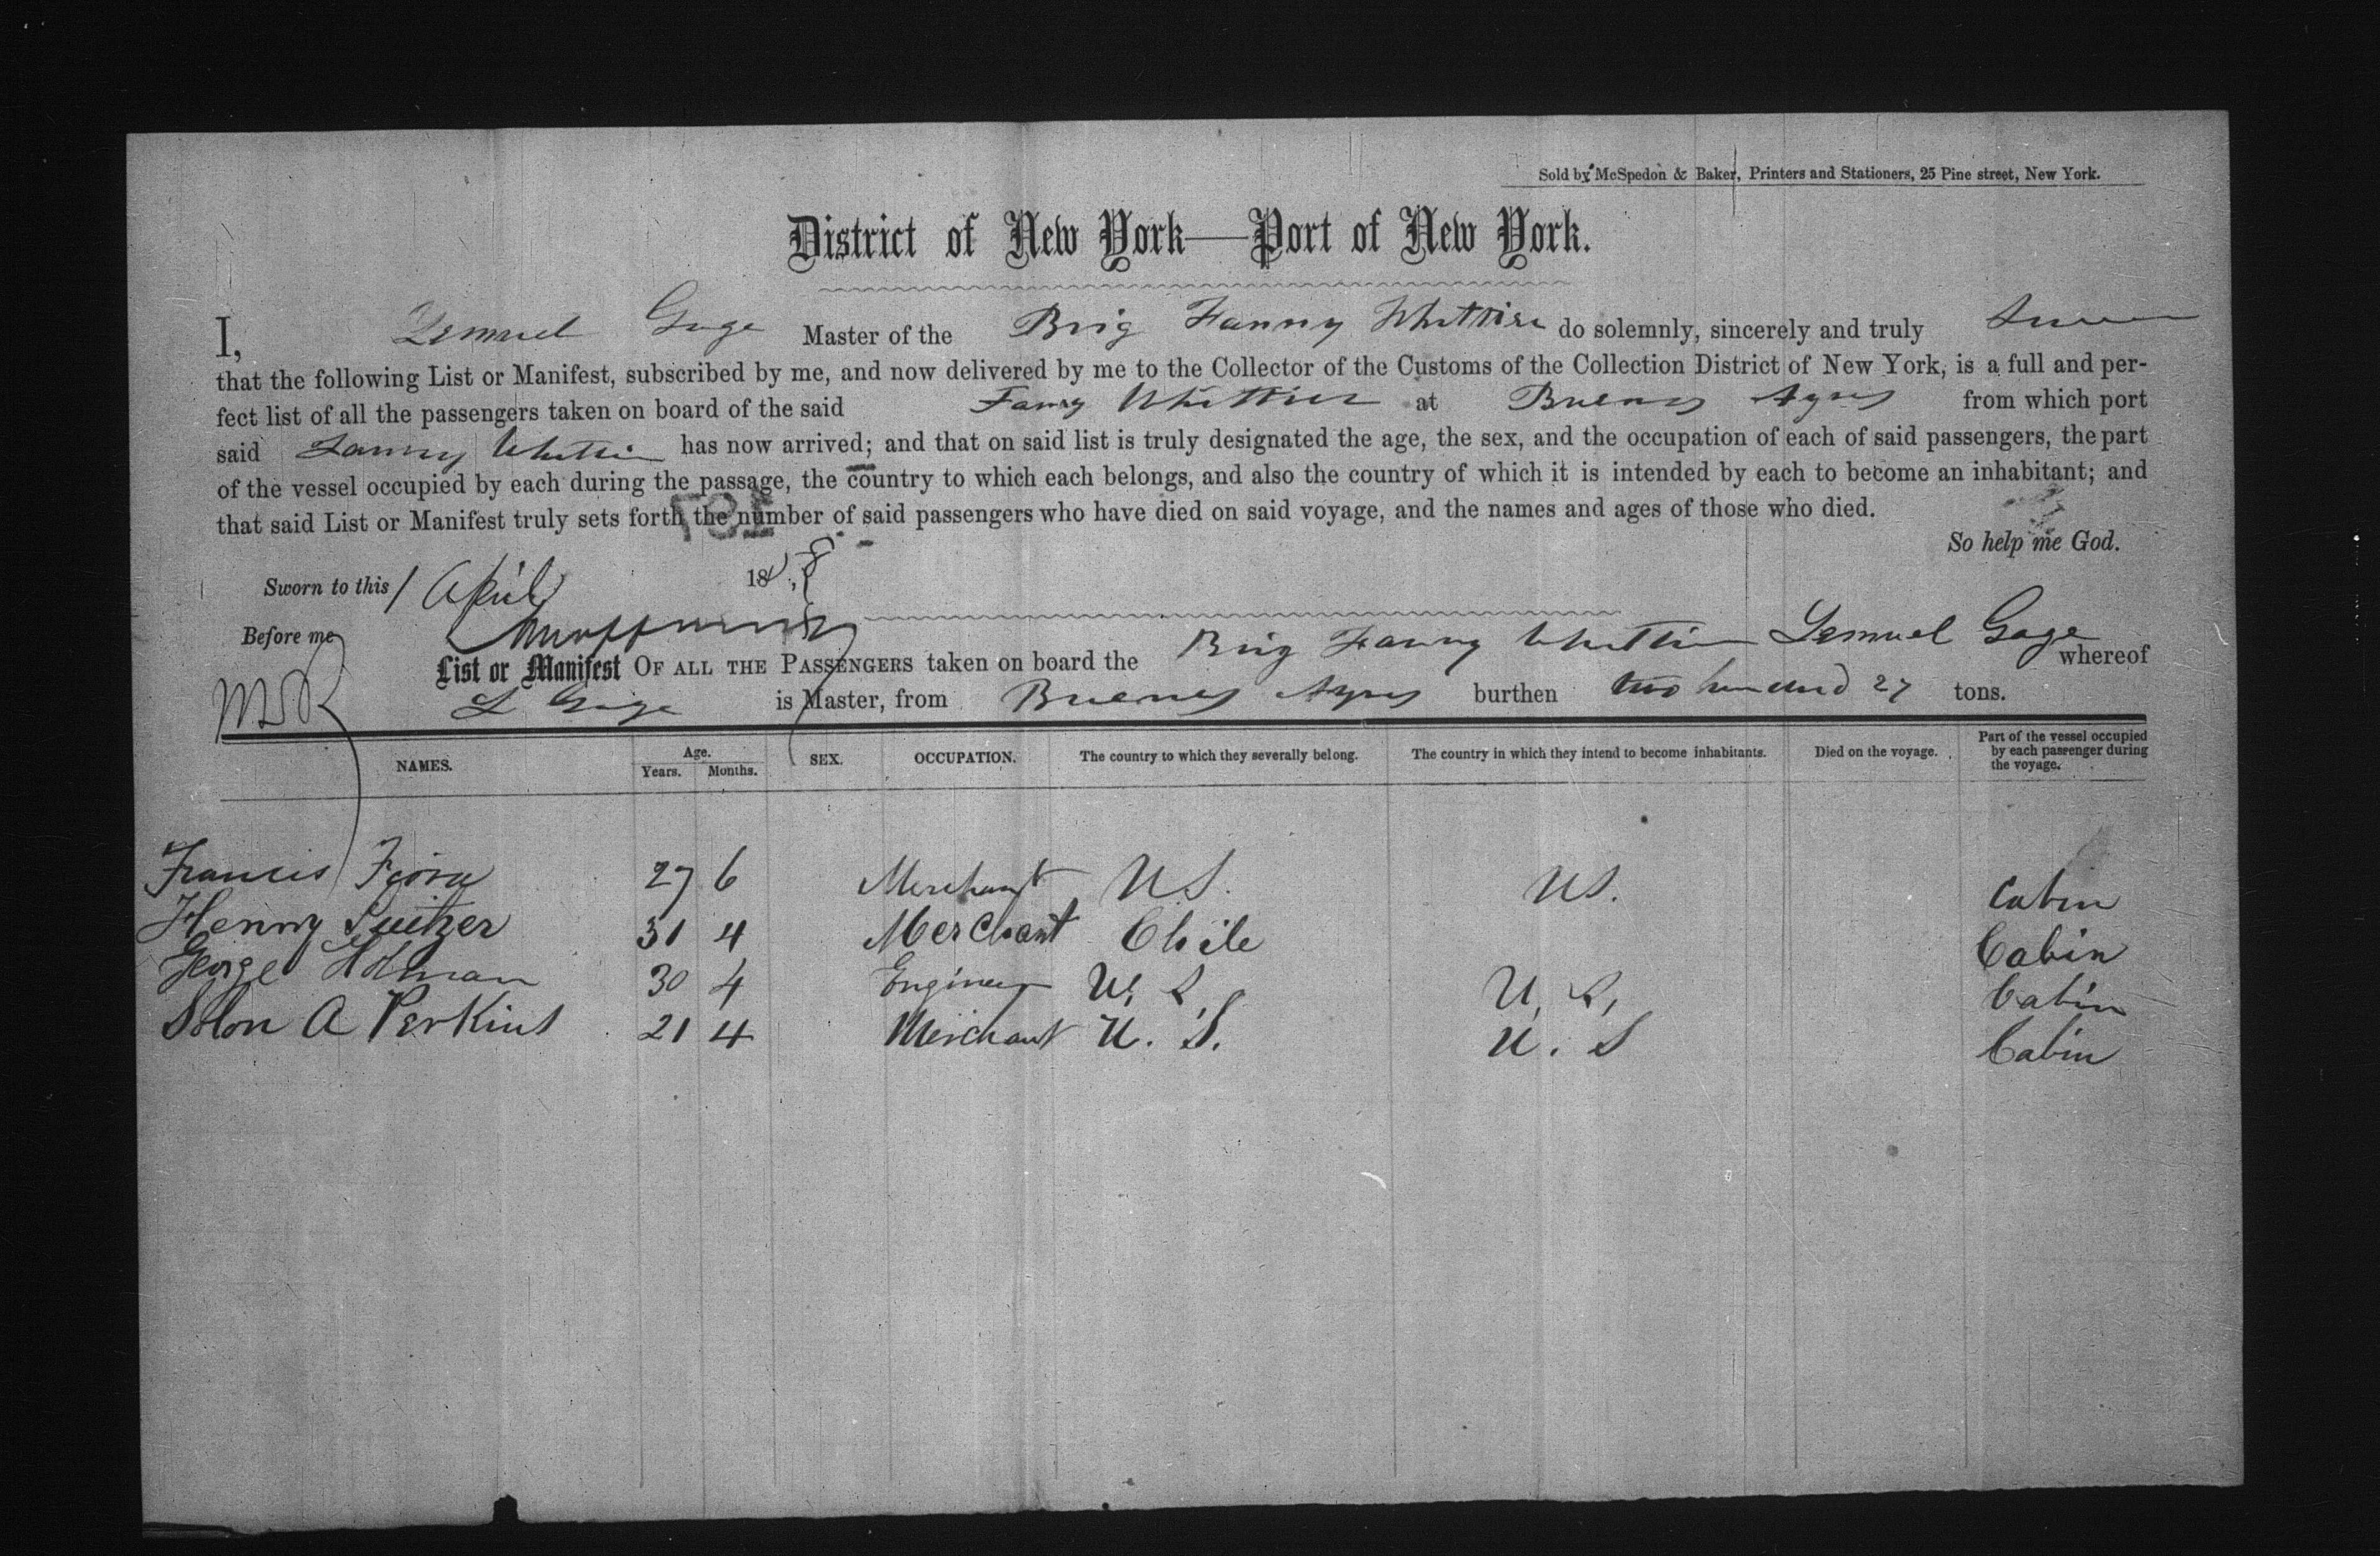 Sold by McSpedon & Baker, Printers and Stationers, 25 Pine street, New York.
District of New York—Port of New York.
I, Lemuel Gage Master of the Brig Fanny Whittier do solemnly, sincerely and truly Swear
that the following List or Manifest, subscribed by me, and now delivered by me to the Collector of the Customs of the Collection District of New York, is a full and per-
fect list of all the passengers taken on board of the said Fanny Whittier at Buenos Ayres from which port
said Fanny Whittier has now arrived; and that on said list is truly designated the age, the sex, and the occupation of each of said passengers, the part
of the vessel occupied by each during the passage, the country to which each belongs, and also the country of which it is intended by each to become an inhabitant; and
that said List or Manifest truly sets forth the number of said passengers who have died on said voyage, and the names and ages of those who died.
So help me God.
Sworn to this 1 April 1858
Before me
Lemuel Gage
List or Manifest OF ALL THE PASSENGERS taken on board the Brig Fanny Whittier whereof
L Gage is Master, from Buenos Ayres burthen two hundred 27 tons.
NAMES. Age. Years. Months. SEX. OCCUPATION. The country to which they severally belong. The country in which they intend to become inhabitants. Died on the voyage. Part of the vessel occupied by each passenger during the voyage.
Francis 27 6 Merchant U S. U S. Cabin
Henry 31 4 Merchant Chile Cabin
George Holman 30 4 Engineer U. S U. S. Cabin
Solon A Perkins 21 4 Merchant U. S. U. S Cabin